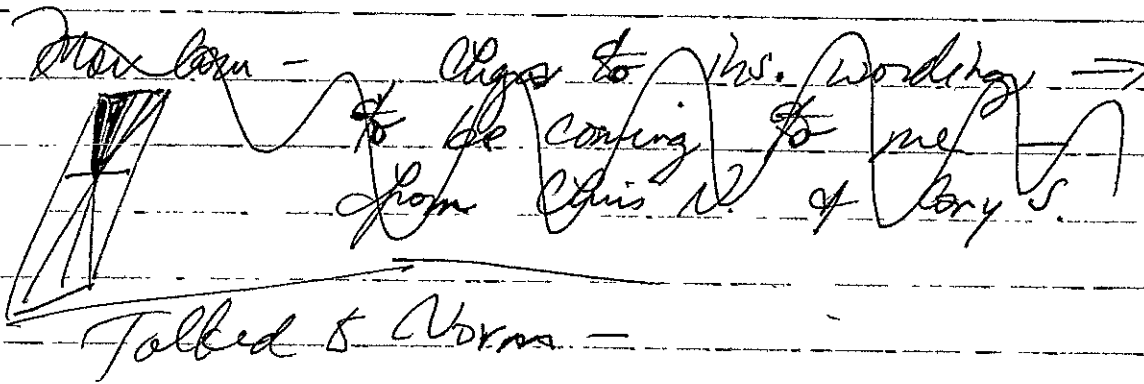 Chgs to ins. wording →
to be coming to me —
from Chris N. & Cory S.
Talked to Norm —